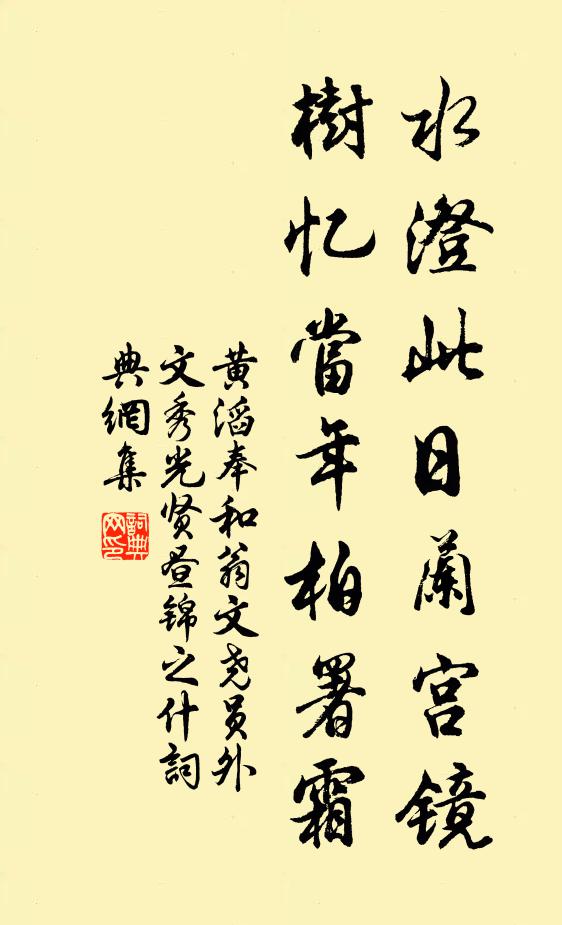 水澄此日蘭宫镜
樹忆當年柏署霜
黄滔奉和翁文尧员外
文秀光贤昼锦之什詞
典網集
詞典
网印